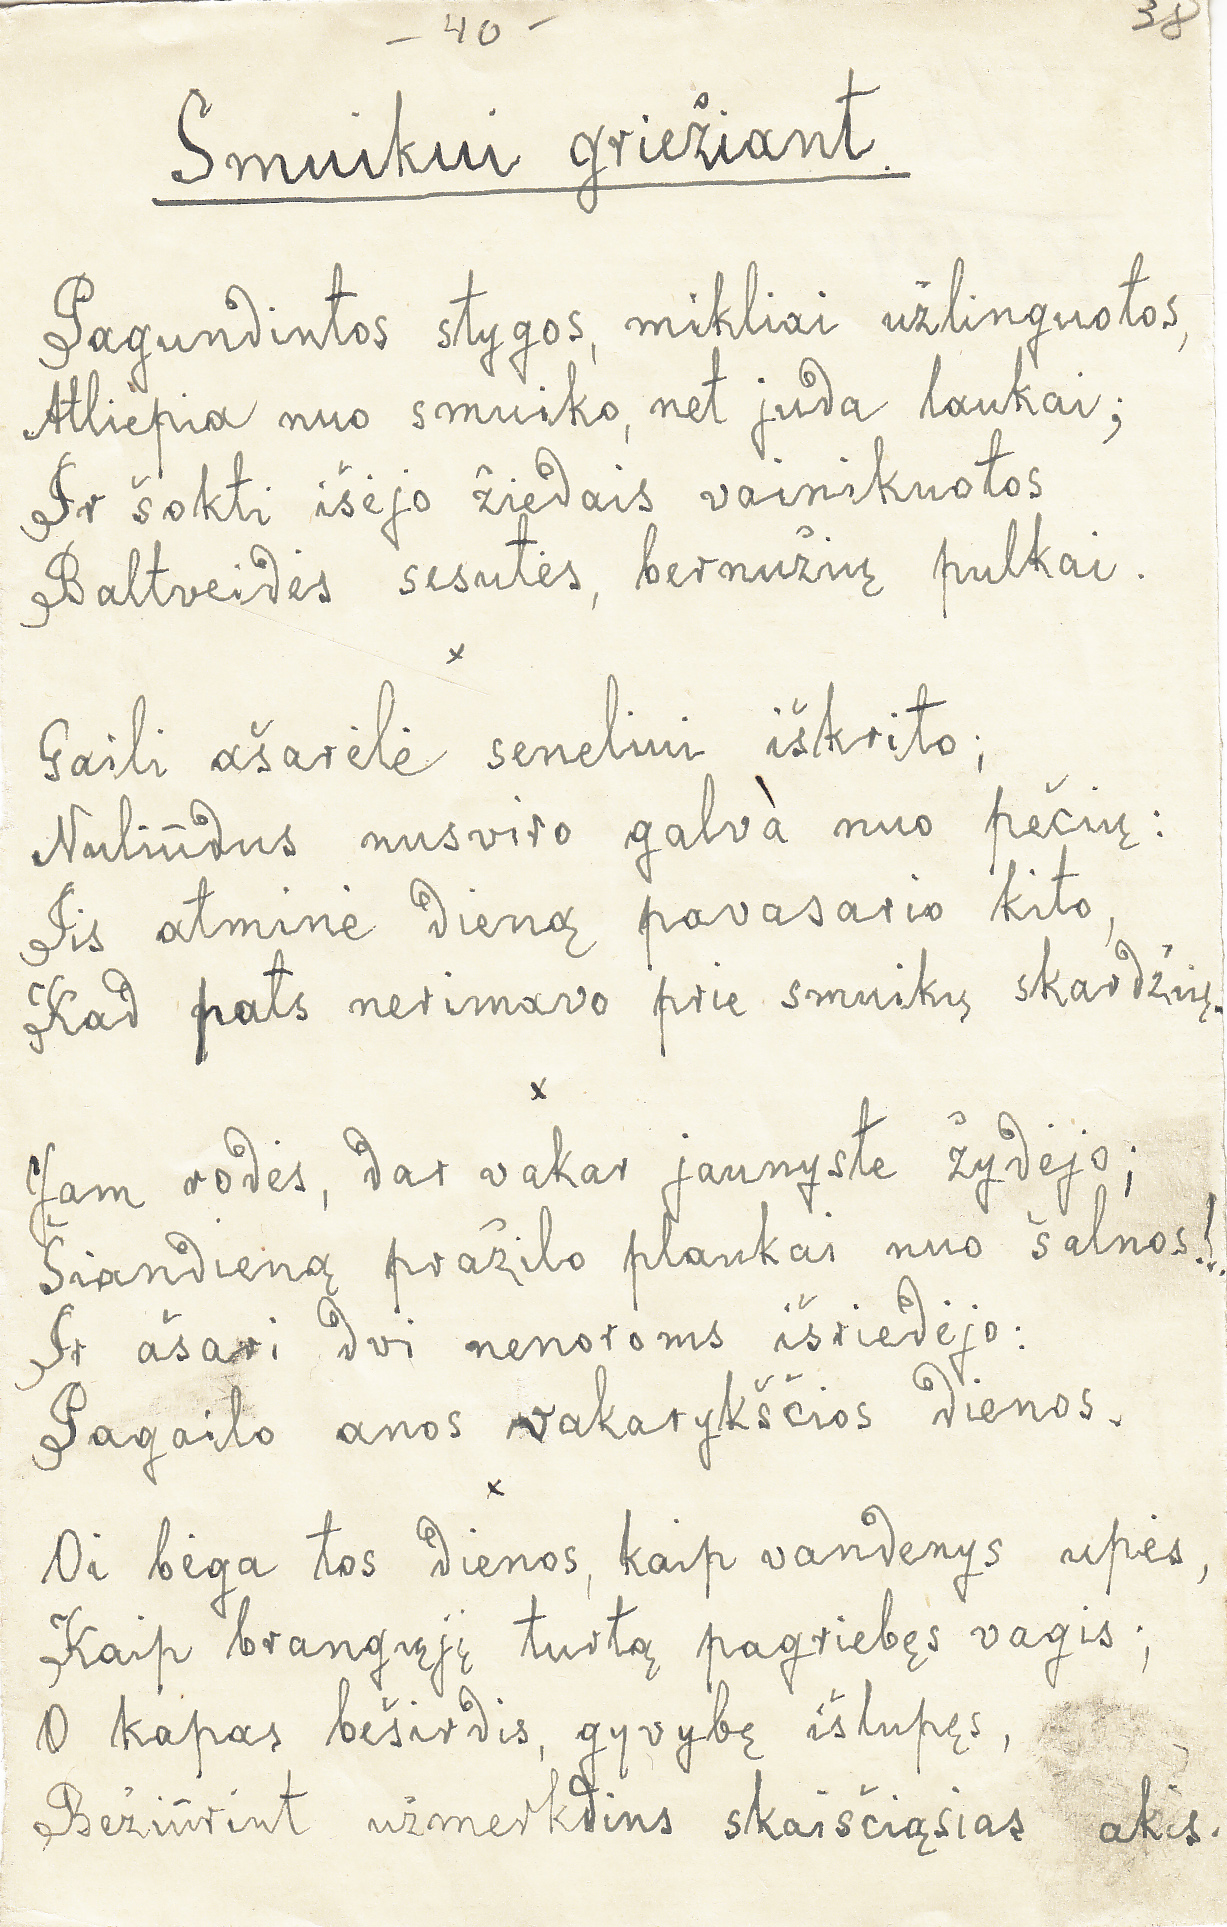 – 40 –
38
Smuikui griežiant.
Pagundintos stygos, mikliai užlinguotos,
Atliepia nuo smuiko, net juda laukai;
Ir šokti išėjo žiedais vainikuotos
Baltveidės sesutės, bernužių pulkai.
x
Gaili ašarėlė seneliui iškrito;
Nuliūdus nusviro galvà nuo pečių:
Jis atminė dieną pavasario kito,
Kad pats nerimavo prie smuikų skardžių.
x
Jam rodės, dar vakar jaunystė žydėjo;
Šiandieną pražilo plaukai nuo šalnos!..
Ir ašari dvi nenoroms išriedėjo:
Pagailo anos vakarykščios dienos.
x
Oi bėga tos dienos, kaip vandenys upės,
Kaip brangųjį turtą pagriebęs vagis;
O kapas beširdis, gyvybę išlupęs,
Bežiūrint užmerkdins skaisčiąsias akis.